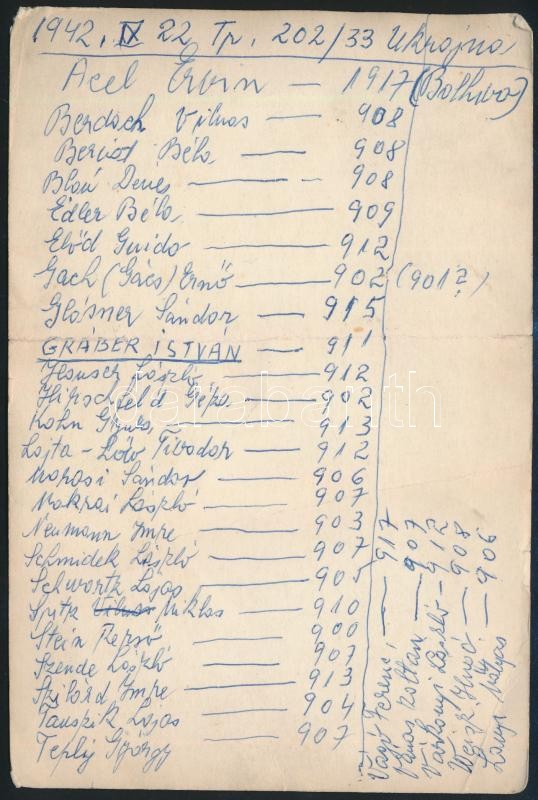 1942. IX 22. Tp. 202/33 Ukrajna
Acel Ervin — 1917 (Bolhva)
Berdach Vilmos — 908
Bernát Béla — 908
Blau Dénes — 908
Edler Béla — 909
Előd Guido — 912
Gach (Gács) Ernő — 902 (901?)
Glósner Sándor — 915
GRÁBER ISTVÁN — 911
László — 912
Hirschfeld Géza — 902
Kohn Gyula — 913
Lajta-Löw Tivadar — 912
Marosi Sándor — 906
Makrai László — 907
Neumann Imre — 903
Schmidek László — 907
Schwartz Lajos — 905
Spitz Miklos — 910
Stein Rezső — 900
Szende László — 907
Szilárd Imre — 913
Tauszik Lajos — 904
Teplij György — 907
Vágó Ferenc — 917
Zoltán — 907
Várkonyi László — 912
Weisz Jenő — 908
Lajos — 906
darabanth